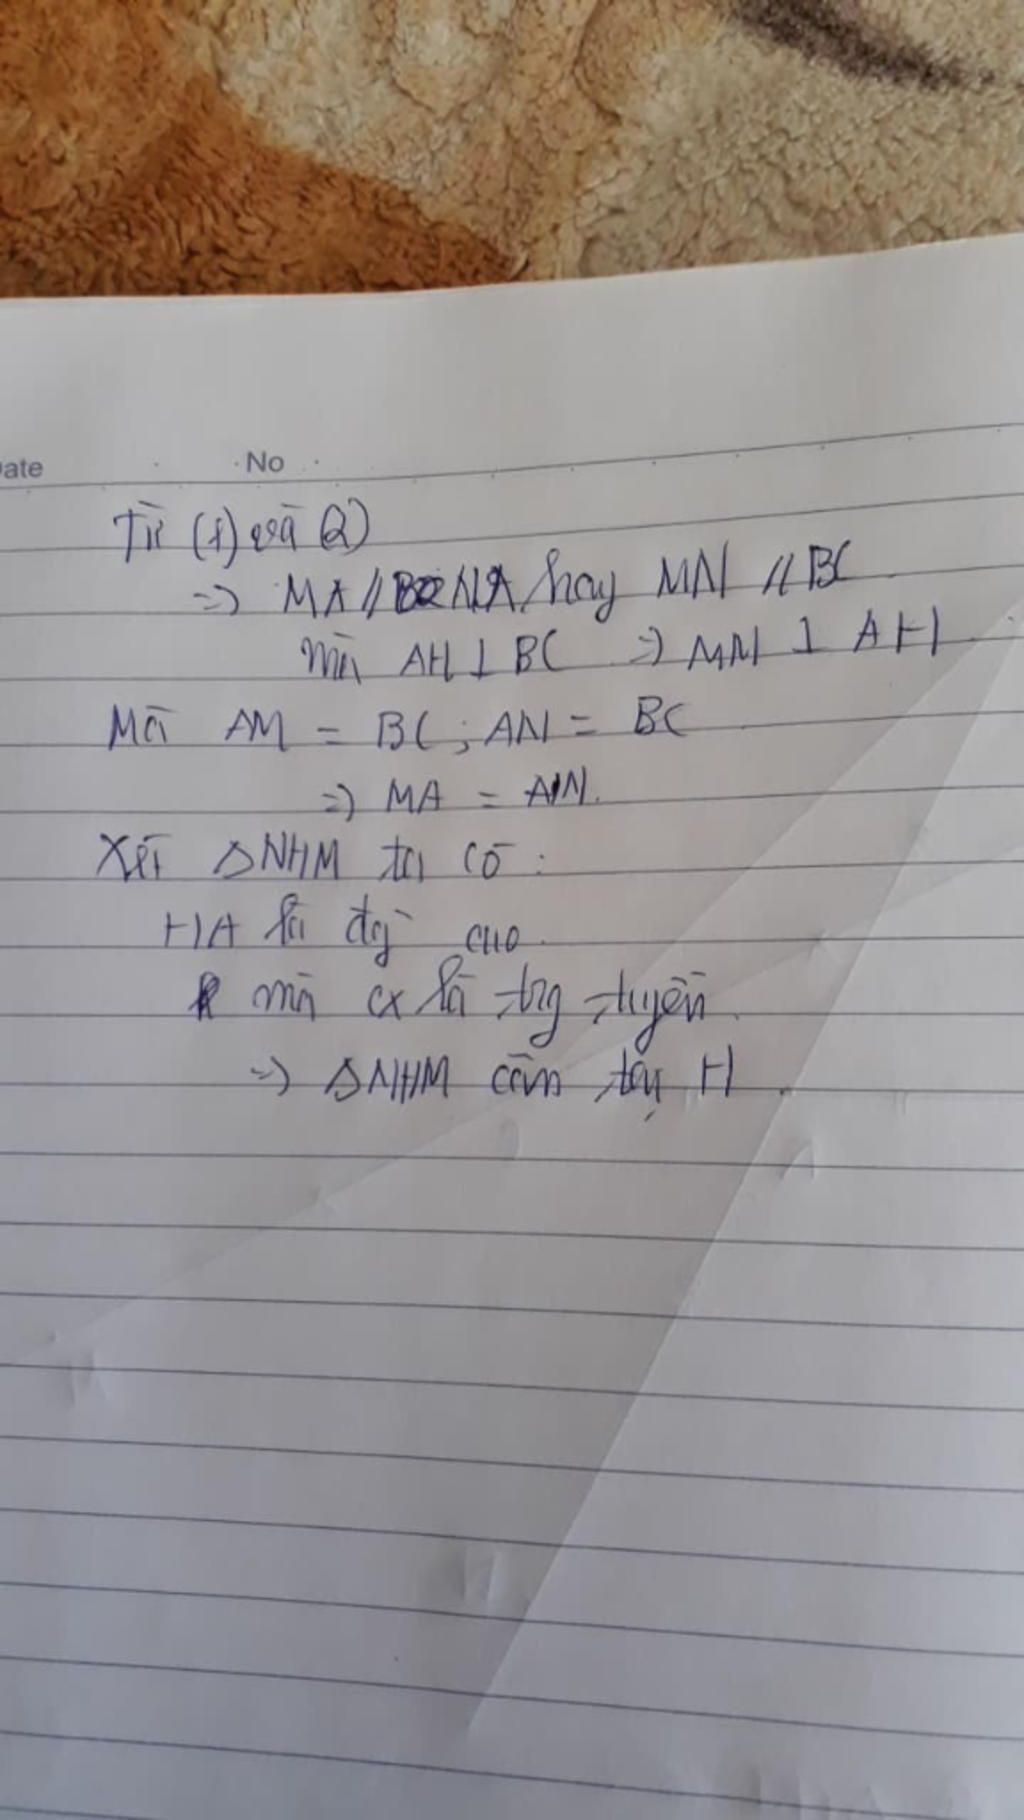 Date No
Từ (1) và (2)
=> MA // NA hay MN // BC
mà AH ⊥ BC => MN ⊥ AH
Mà AM = BC ; AN = BC
=> MA = AN.
Xét ΔNHM ta có :
HA là đg cao.
mà cx là trg tuyến.
=> ΔNHM cân tại H.